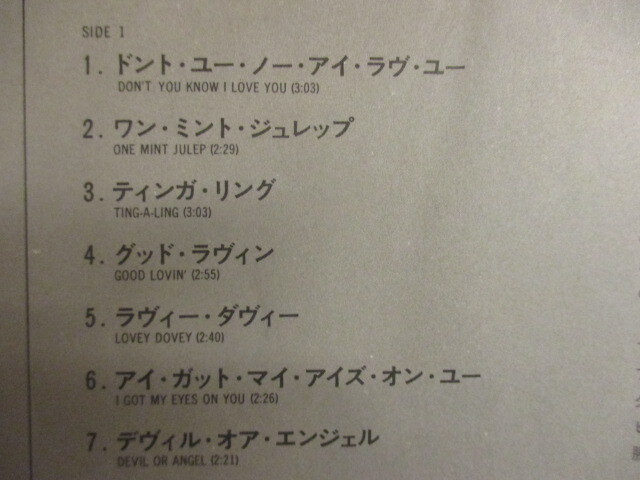 SIDE 1
1. ドント・ユー・ノー・アイ・ラヴ・ユー
DON'T YOU KNOW I LOVE YOU (3:03)
2. ワン・ミント・ジュレップ
ONE MINT JULEP (2:29)
3. ティンガ・リング
TING-A-LING (3:03)
4. グッド・ラヴィン
GOOD LOVIN' (2:55)
5. ラヴィー・ダヴィー
LOVEY DOVEY (2:40)
6. アイ・ガット・マイ・アイズ・オン・ユー
I GOT MY EYES ON YOU (2:26)
7. デヴィル・オア・エンジェル
DEVIL OR ANGEL (2:21)